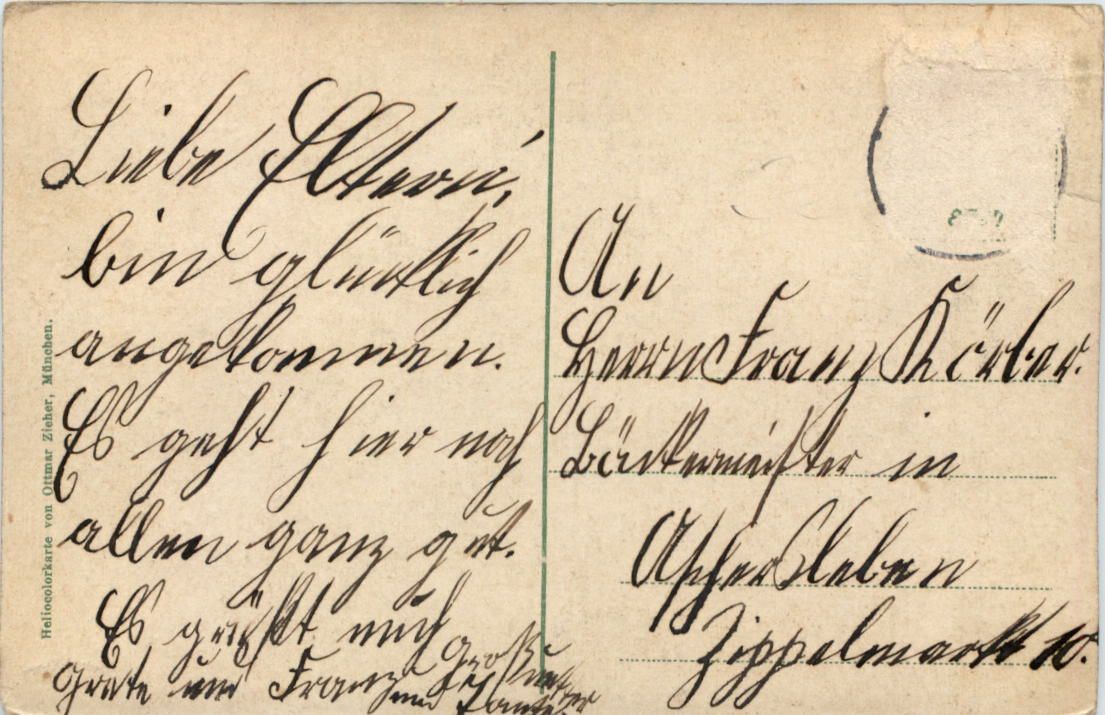 Liebe Eltern,
bin glücklich
angekommen.
Es geht hier noch
allen ganz gut.
Es grüßt euch
Grete und Franz
und Tante
An
Herrn Franz Körber.
Bäckermeister in
Aschersleben
Zippelmarkt 10.
Heliocolorkarte von Ottmar Zieher, München.